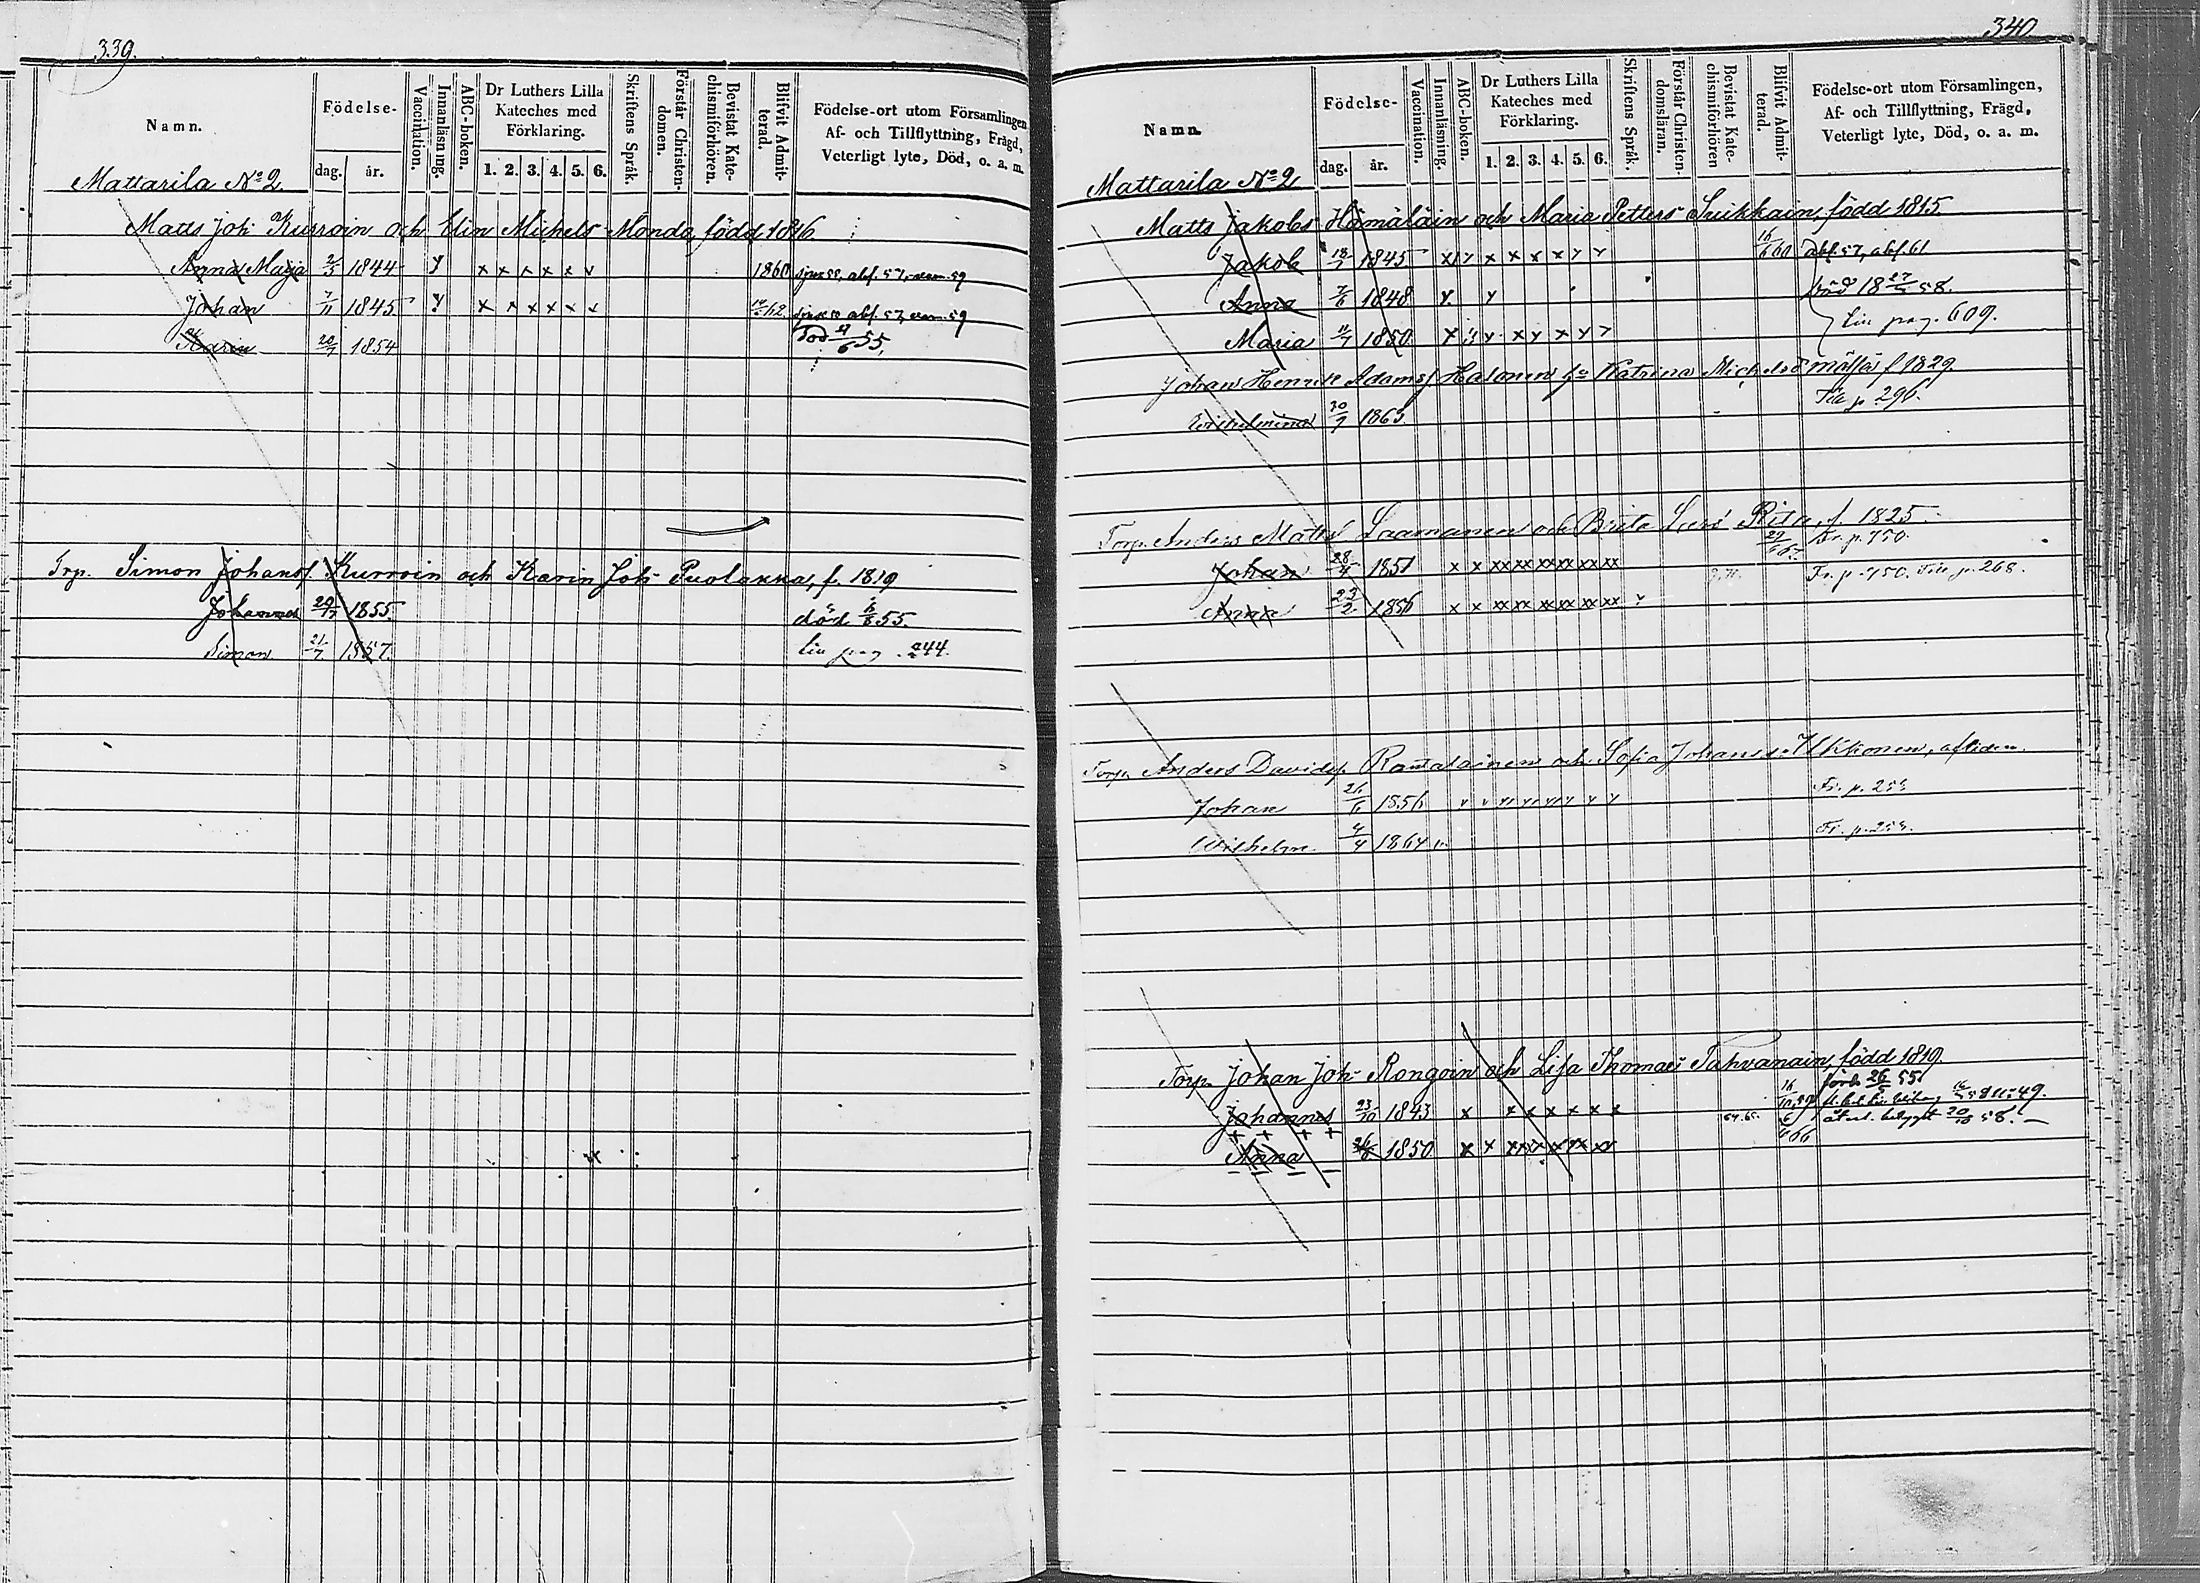 339.
Namn.
Födelse-
dag.
år.
Vaccination.
Innanläsning.
ABC-boken.
Dr Luthers Lilla
Kateches med
Förklaring.
1. 2. 3. 4. 5. 6.
Skriftens Språk.
Förstår Christen-
domen.
Bevistat Kate-
chismiförhören.
Blifvit Admit-
terad.
Födelse-ort utom Församlingen
Af- och Tillflyttning, Frägd,
Veterligt lyte, Död, o. a. m.
Mattarila No 2
Matts Joh. Kurroin och Elin Michels Mondo, född 1826.
Anna Maja 2/5 1844 1860 abf. 57, 59
Johan 7/11 1845 62 abf. 57, 59
Karin 20/7 1854 död 4/6 55,
Trp. Simon Johanss. Kurroin och Karin Joh. Puolakka, f. 1819
Johannes 20/7 1855. död 6/8 55.
Simon 21/7 1857. Liu pag. 244.
340
Namn.
Födelse-
dag.
år.
Vaccination.
Innanläsning.
ABC-boken.
Dr Luthers Lilla
Kateches med
Förklaring.
1. 2. 3. 4. 5. 6.
Skriftens Språk.
Förstår Christen-
domsläran.
Bevistat Kate-
chismiförhören
Blifvit Admit-
terad.
Födelse-ort utom Församlingen,
Af- och Tillflyttning, Frägd,
Veterligt lyte, Död, o. a. m.
Mattarila No 2
Matts Jakobs Hämäläin och Maria Petters Suikkain, född 1815.
Jakob 18/7 1845 16/6 60 abf. 57, abf. 61
Anna 7/6 1848 död 18 27/ 58.
Maria 11/7 1850 Liu pag. 609.
Johan Henrik Adamsf Halonen Katrina Michelsd f 1829
Wilhelmina 30/9 1863. Till p. 296.
Torp. Anders Matts Laamanen och Brita Lars Rita, f. 1825.
Johan 28/4 1851 Fr. p. 750.
Anna 23/2 1856 Fr. p. 750. Till p. 268.
Torp. Anders Davidsf. Rantalainen och Sofia Johansd. Ukkonen, afliden.
Johan 26/6 1856 Fr. p. 255
Wilhelm 4/4 1864 Fr. p. 255.
Torp. Johan Joh. Rongoin och Lisa Thomas Tahvanain, född 1819.
Johannes 23/10 1843 64. 65. 26/5 55 49.
20/10 58.
Anna 26/6 1850 66